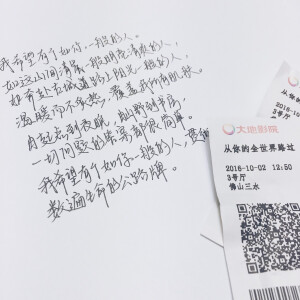 我希望有个如你一般的人。
如这山间清晨一般明亮清爽的人，
如奔赴古城道路上阳光一般的人，
温暖而不炙热，覆盖我所有肌肤。
由起点到夜晚，由山野到书房，
一切问题的答案都很简单。
我希望有个如你一般的人，贯彻
数遍生命的公路牌。
大地影院
从你的全世界路过
2016-10-02 12:50
3号厅
佛山三水
3号厅
佛山